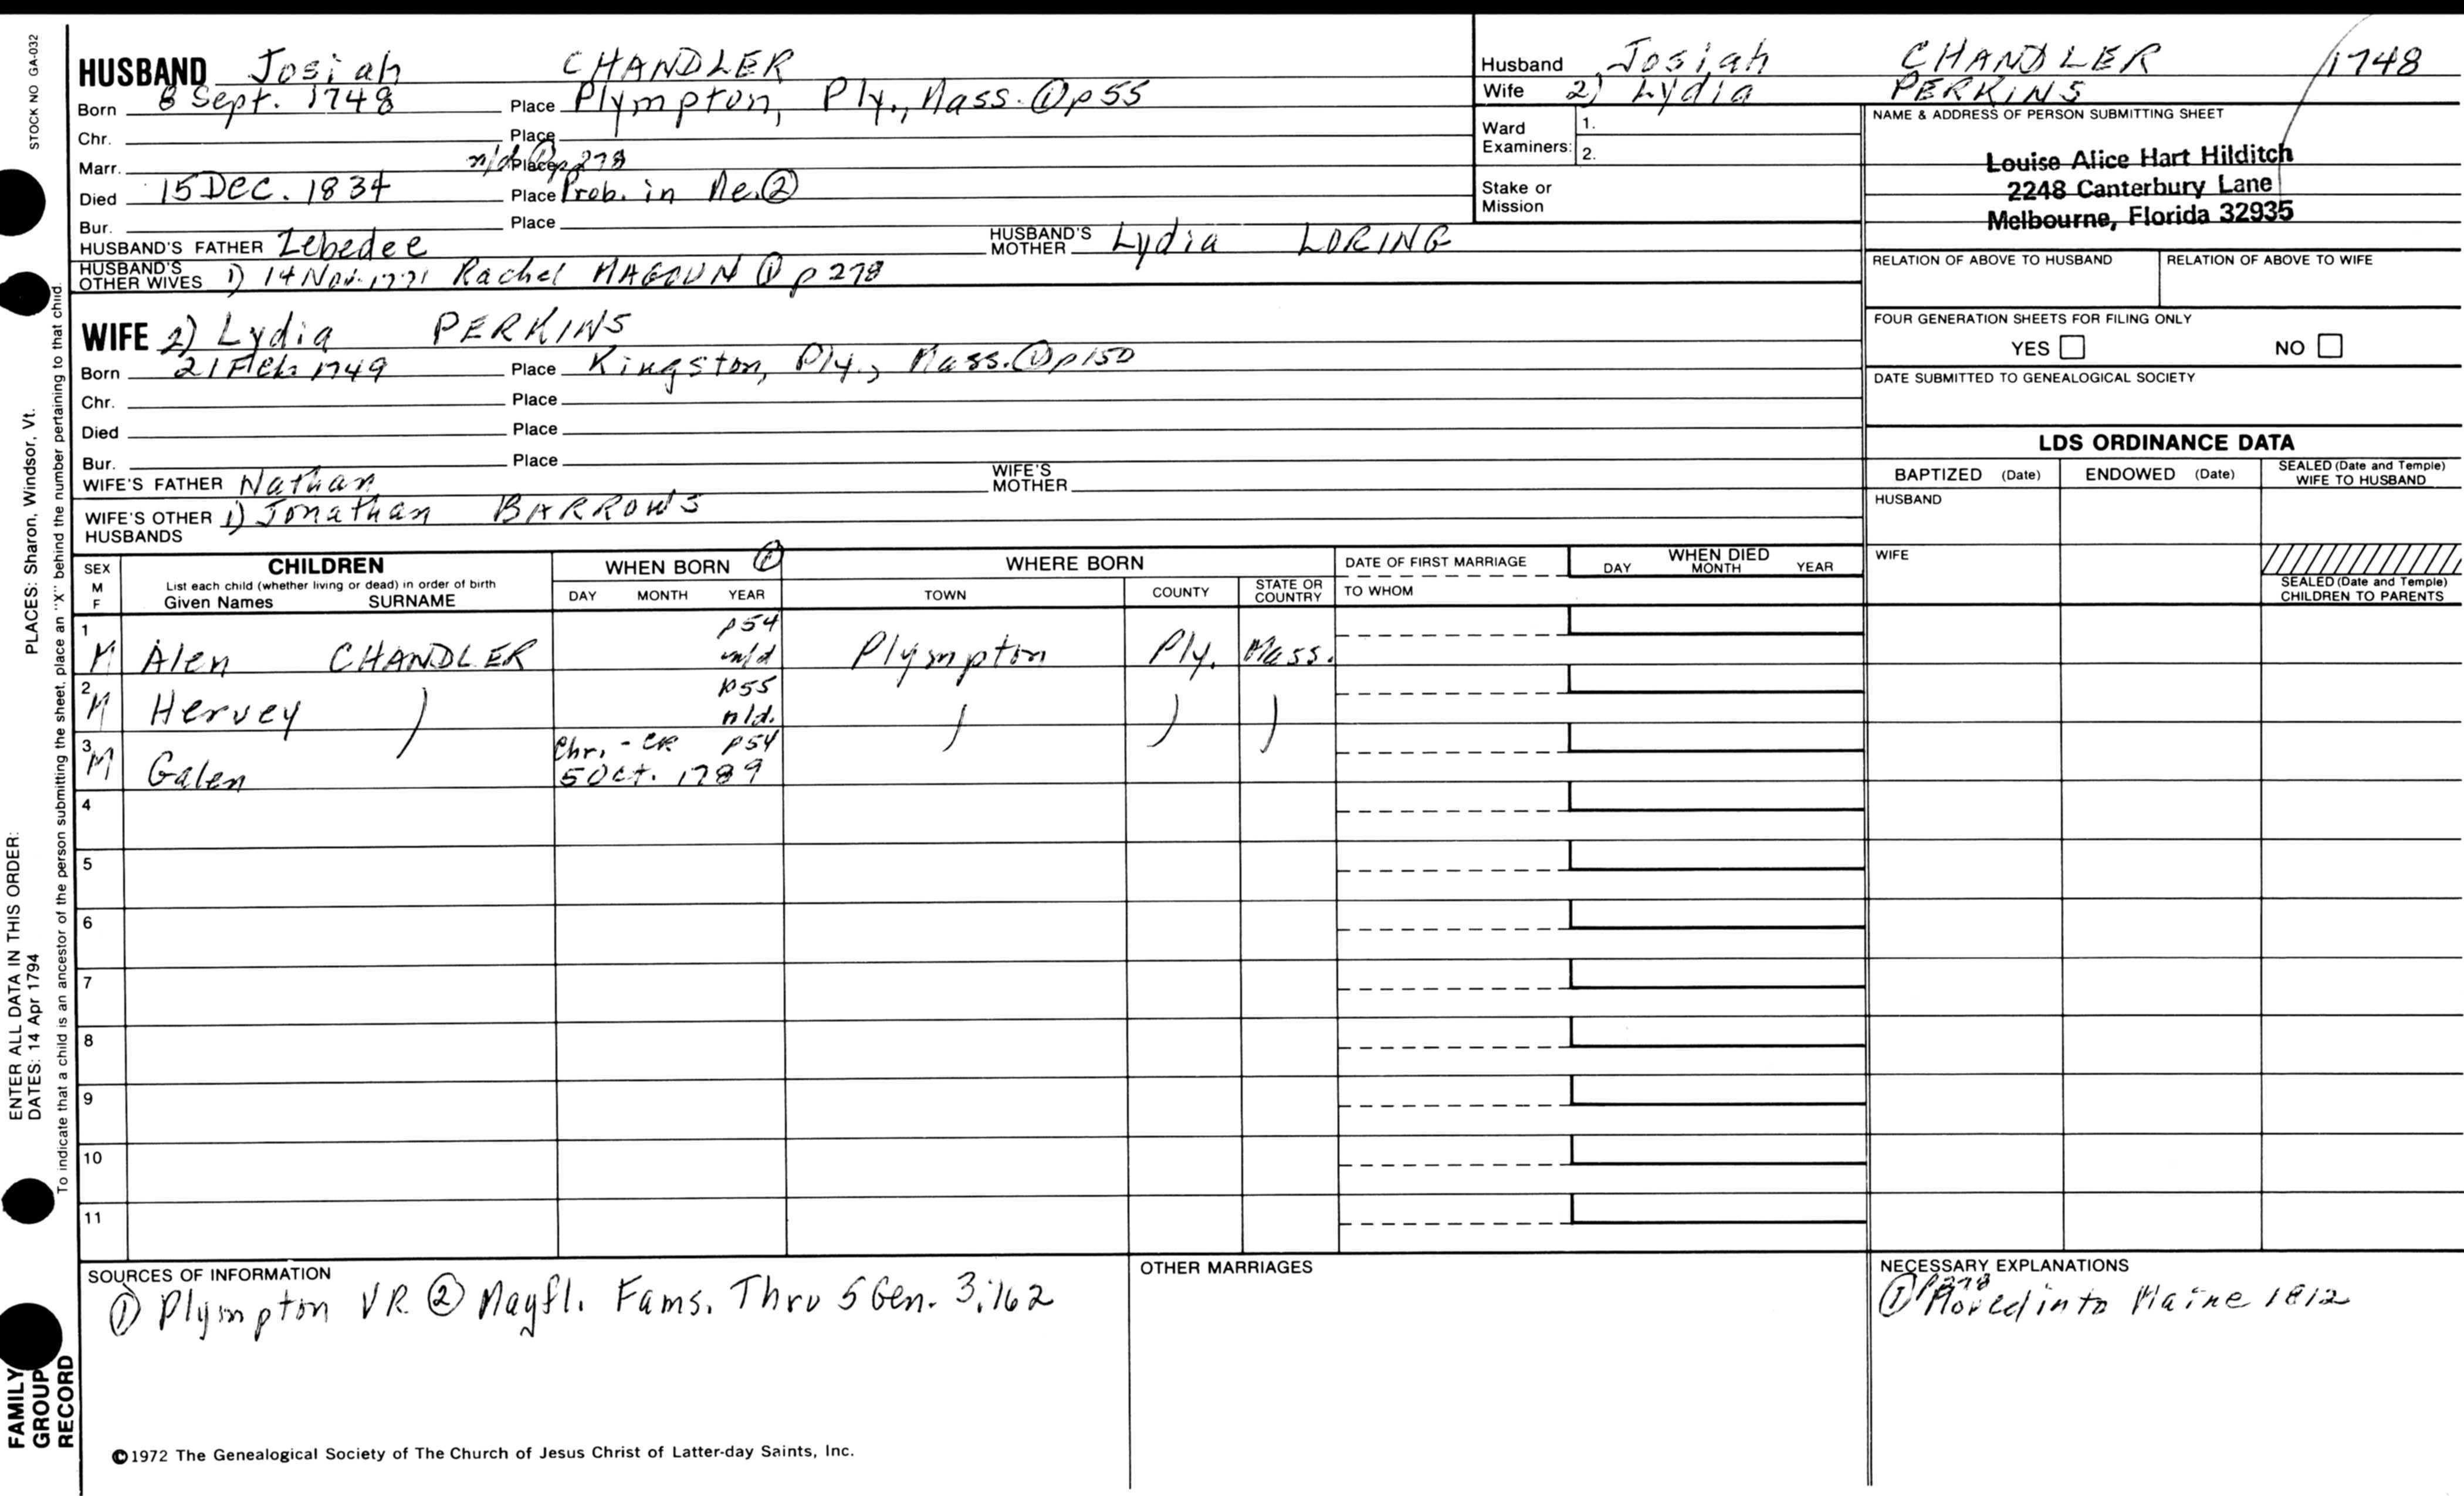 STOCK NO GA-032
HUSBAND Josiah CHANDLER
Born 8 Sept. 1748 Place Plympton, Ply., Mass. ① p55
Chr. Place
Marr. n/d ① p 278 Place
Died 15 Dec. 1834 Place Prob. in Me. ②
Bur. Place
HUSBAND'S FATHER Zebedee HUSBAND'S MOTHER Lydia LORING
HUSBAND'S OTHER WIVES 1) 14 Nov. 1771 Rachel MAGOUN ① p 278
WIFE 2) Lydia PERKINS
Born 21 Feb. 1749 Place Kingston, Ply., Mass. ① p150
Chr. Place
Died Place
Bur. Place
WIFE'S FATHER Nathan WIFE'S MOTHER
WIFE'S OTHER HUSBANDS 1) Jonathan BARROWS
Husband Josiah CHANDLER 1748
Wife 2) Lydia PERKINS
Ward Examiners: 1.
2.
Stake or Mission
NAME & ADDRESS OF PERSON SUBMITTING SHEET
Louise Alice Hart Hilditch
2248 Canterbury Lane
Melbourne, Florida 32935
RELATION OF ABOVE TO HUSBAND RELATION OF ABOVE TO WIFE
FOUR GENERATION SHEETS FOR FILING ONLY
YES NO
DATE SUBMITTED TO GENEALOGICAL SOCIETY
LDS ORDINANCE DATA
BAPTIZED (Date) ENDOWED (Date) SEALED (Date and Temple) WIFE TO HUSBAND
HUSBAND
WIFE
SEALED (Date and Temple)
CHILDREN TO PARENTS
SEX M F CHILDREN WHEN BORN ① WHERE BORN DATE OF FIRST MARRIAGE WHEN DIED
List each child (whether living or dead) in order of birth
Given Names SURNAME DAY MONTH YEAR TOWN COUNTY STATE OR COUNTRY TO WHOM DAY MONTH YEAR
1 p54
M Alen CHANDLER n/d Plympton Ply. Mass.
2 p55
M Hervey ) n/d. ) ) )
3 Chr. - CR p54
M Galen 5 Oct. 1789
4
5
6
7
8
9
10
11
SOURCES OF INFORMATION
① Plympton VR ② Mayfl. Fams. Thru 5 Gen. 3:162
OTHER MARRIAGES
NECESSARY EXPLANATIONS
① p278 Moved into Maine 1812
©1972 The Genealogical Society of The Church of Jesus Christ of Latter-day Saints, Inc.
ENTER ALL DATA IN THIS ORDER:
DATES: 14 Apr 1794
PLACES: Sharon, Windsor, Vt.
To indicate that a child is an ancestor of the person submitting the sheet, place an "X" behind the number pertaining to that child.
FAMILY
GROUP
RECORD